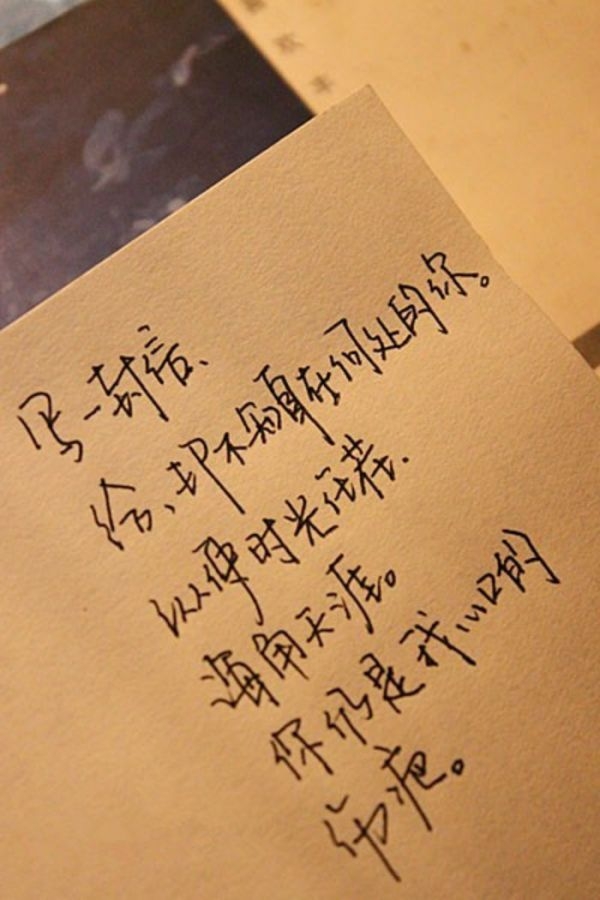 写一封信、
给、却不知身在何处的你。
纵使时光荏苒、
海角天涯。
你仍是我心口的
伤疤。